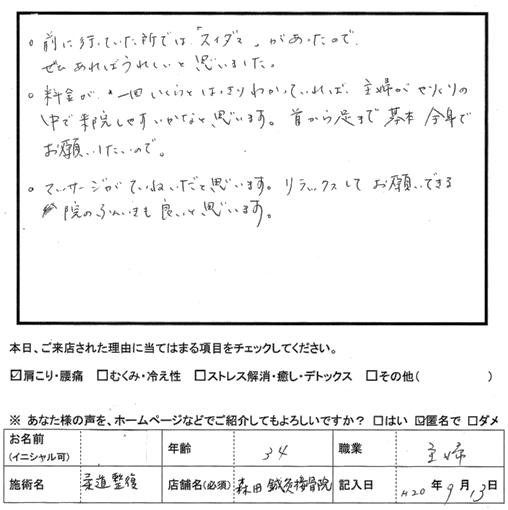 ○ 前に行っていた所では「スイダマ」があったので、
ぜひあればうれしいと思いました。
○ 料金が、一回いくらとはっきりわかっていれば、主婦がやりくりの
中で来院しやすいかなと思います。首から足まで基本全身で
お願いしたいので。
○ マッサージがていねいだと思います。リラックスしてお願いできる
院のふんいきも良いと思います。
本日、ご来店された理由に当てはまる項目をチェックしてください。
☑肩こり・腰痛 □むくみ・冷え性 □ストレス解消・癒し・デトックス □その他( )
※ あなた様の声を、ホームページなどでご紹介してもよろしいですか? □はい ☑匿名で □ダメ
お名前
(イニシャル可)
年齢 34 職業 主婦
施術名 柔道整復 店舗名(必須) 森田鍼灸接骨院 記入日 H20年9月13日